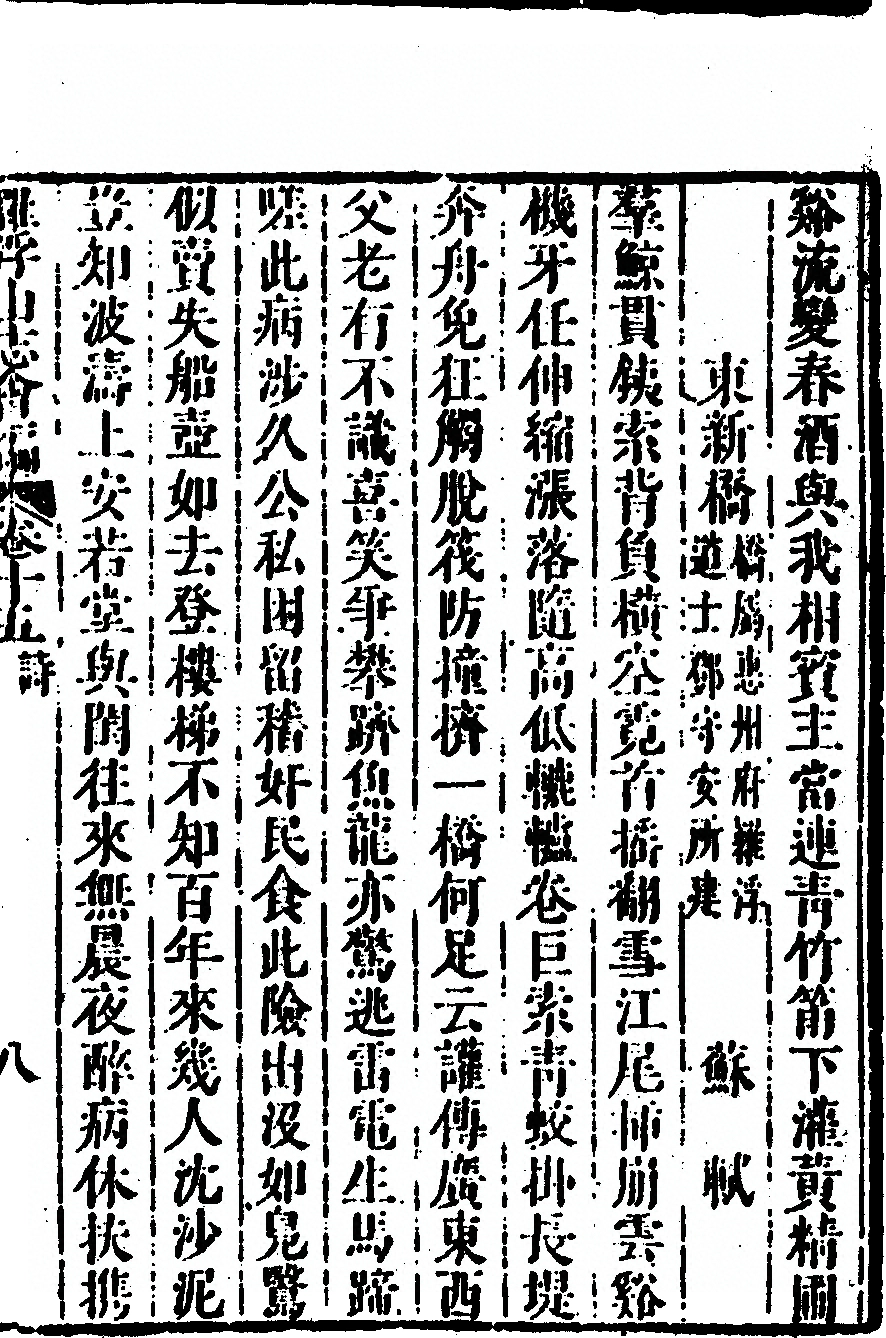 谿流變春酒與我相賓主當連靑竹筩下灌黃精圃
東新橋橋屬惠州府羅浮道士鄧守安所建 蘇軾
羣鯨貫鐵索背負橫空霓首搖翻雪江尾揷崩雲谿
機牙任伸縮漲落隨高低轆轤卷巨索靑蛟掛長堤
奔舟免狂觸脫筏防撞擠一橋何足云讙傳廣東西
父老有不識喜笑爭攀躋魚龍亦驚逃雷電生馬蹄
嗟此病涉久公私困留稽奸民食此險出沒如鳧鷖
似賣失船壺如去登樓梯不知百年來幾人沈沙泥
豈知波濤上安若堂與閨往來無晨夜醉病休扶攜
羅浮山志會編 卷十五 詩 八